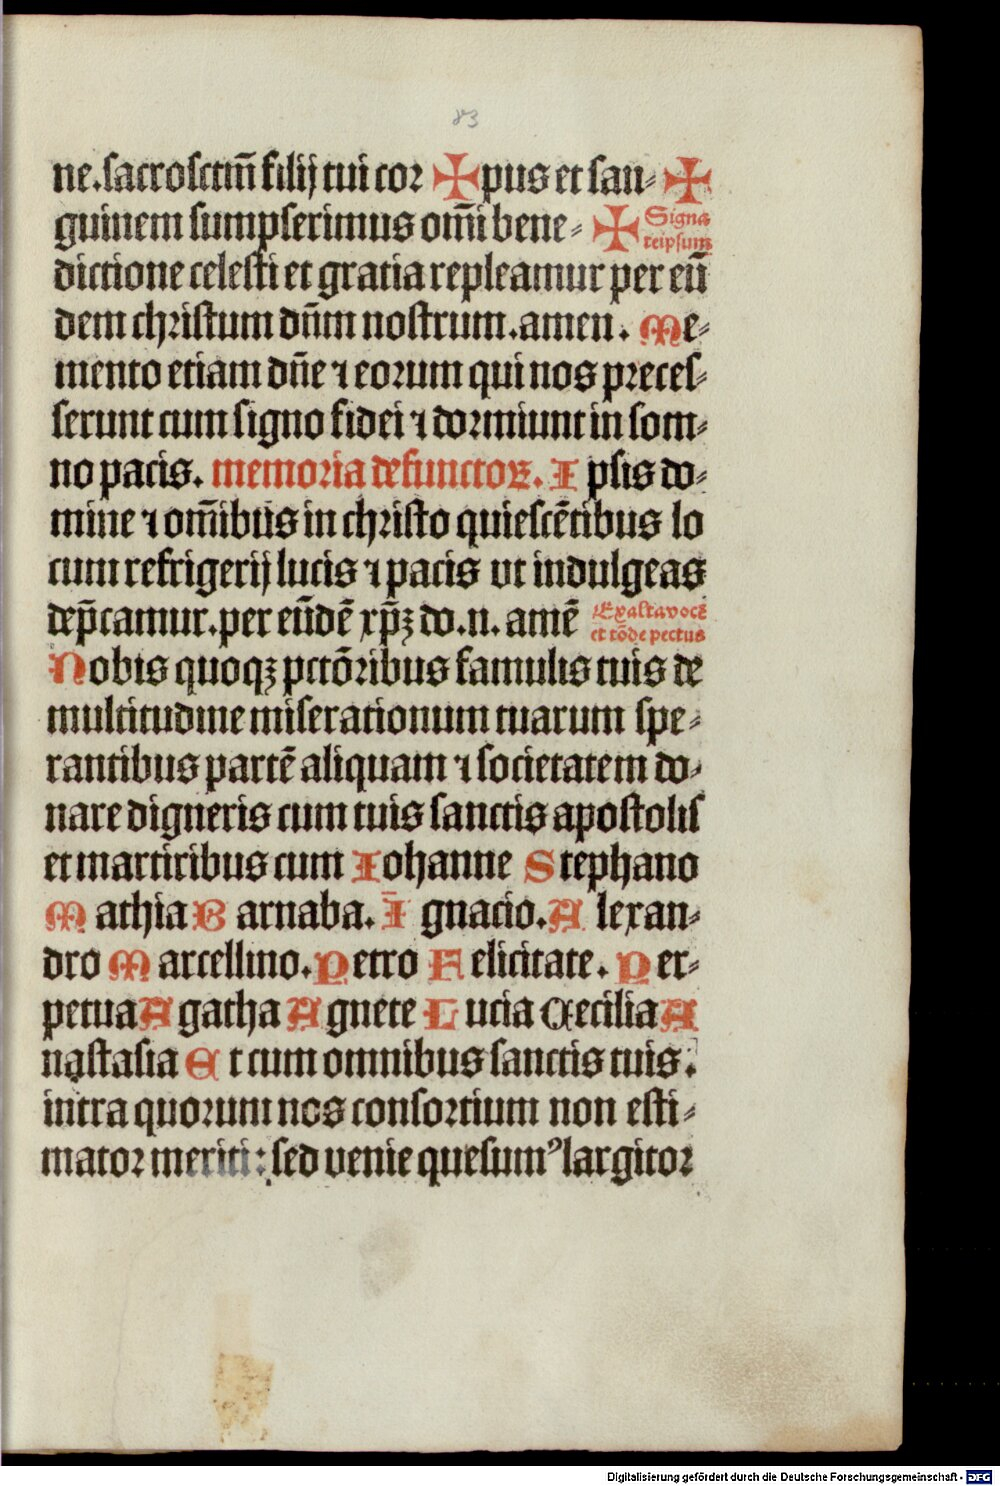 83
ne.sacrosctm̄ filij tui cor ✠ pus et san⸗ ✠
guinem sumpserimus om̄i bene⸗ ✠ Signa
teipsum
dictione celesti et gratia repleamur per eū
dem christum dn̄m nostrum.amen. Me⸗
mento etiam dn̄e ⁊ eorum qui nos preces⸗
serunt cum signo fidei ⁊ dormiunt in som⸗
no pacis. memoria defunctoꝝ. Ipsis do⸗
mine ⁊ om̄ibus in christo quiescētibus lo
cum refrigerij lucis ⁊ pacis ut indulgeas
dep̄camur.per eūdē xp̄ꝫ do.n. amē Exalta vocē
et tōde pectus
Nobis quoqꝫ pctōribus famulis tuis de
multitudine miserationum tuarum spe⸗
rantibus partē aliquam ⁊ societatem do⸗
nare digneris cum tuis sanctis apostolis
et martiribus cum Iohanne Stephano
Mathia Barnaba. Īgnacio. Alexan⸗
dro Marcellino. Petro Felicitate. Per⸗
petua Agatha Agnete Lucia Cecilia A
nastasia Et cum omnibus sanctis tuis:
intra quorum nos consortium non esti⸗
mator meriti: sed venie quesumꝰ largitor
Digitalisierung gefördert durch die Deutsche Forschungsgemeinschaft - DFG